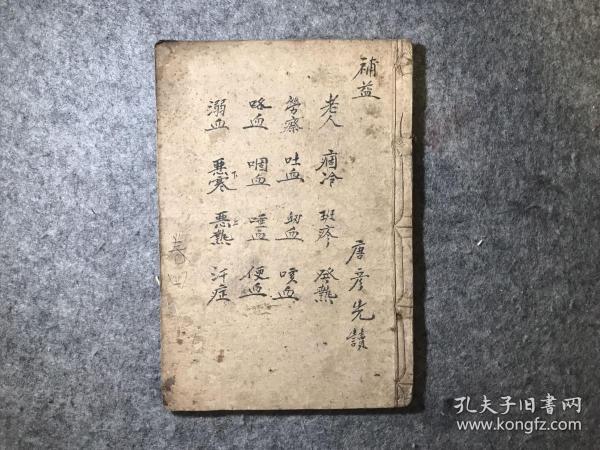 補益
唐彥先讀
老人 痼冷 斑疹 發熱
勞瘵 吐血 衂血 咳血
咯血 咽血 唾血 便血
溺血 惡寒 惡熱 汗症
下 上
卷四
孔夫子旧书网
www.kongfz.com